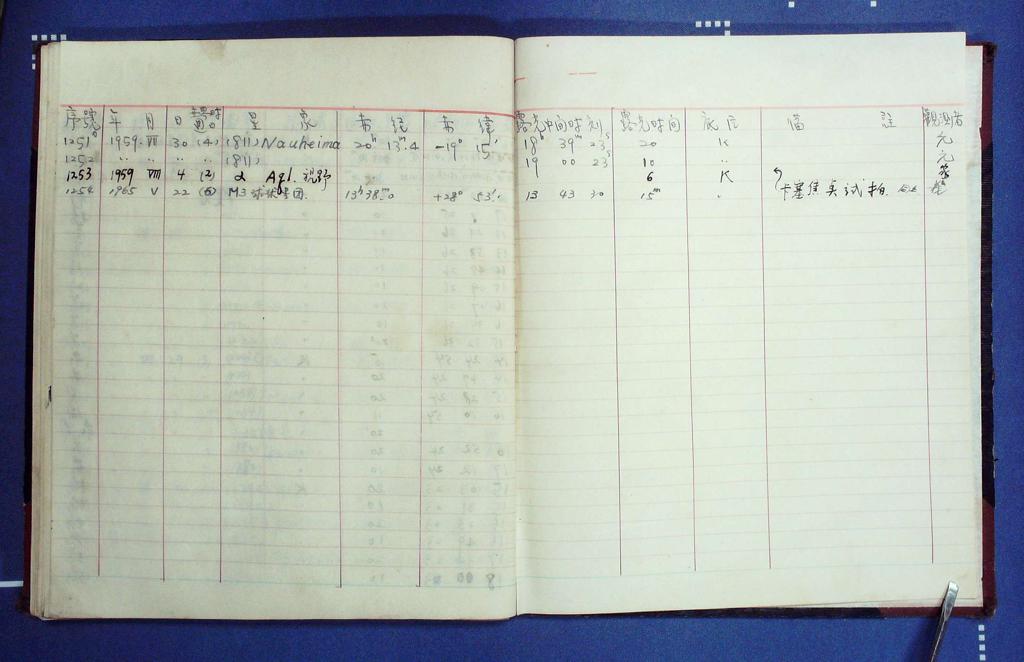 序號 年 月 日 星 象 赤 经 赤 緯 露光中间时刻 露光时间 底片 備 註 觀測者
1251 1959 VII 30 (4) (811) Nauheima 20h 13m.4 -19° 15' 18h 39m 23s 20 K 元
1252 〃 〃 〃 (811) 19 00 23s 10 〃 元
1253 1959 VIII 4 (2) α Aql. 視野 6 K
1254 1965 V 22 M3 球状星团. 13h38m.0 +28° 53' 13 43 30 15m 〃 卡塞焦点试拍